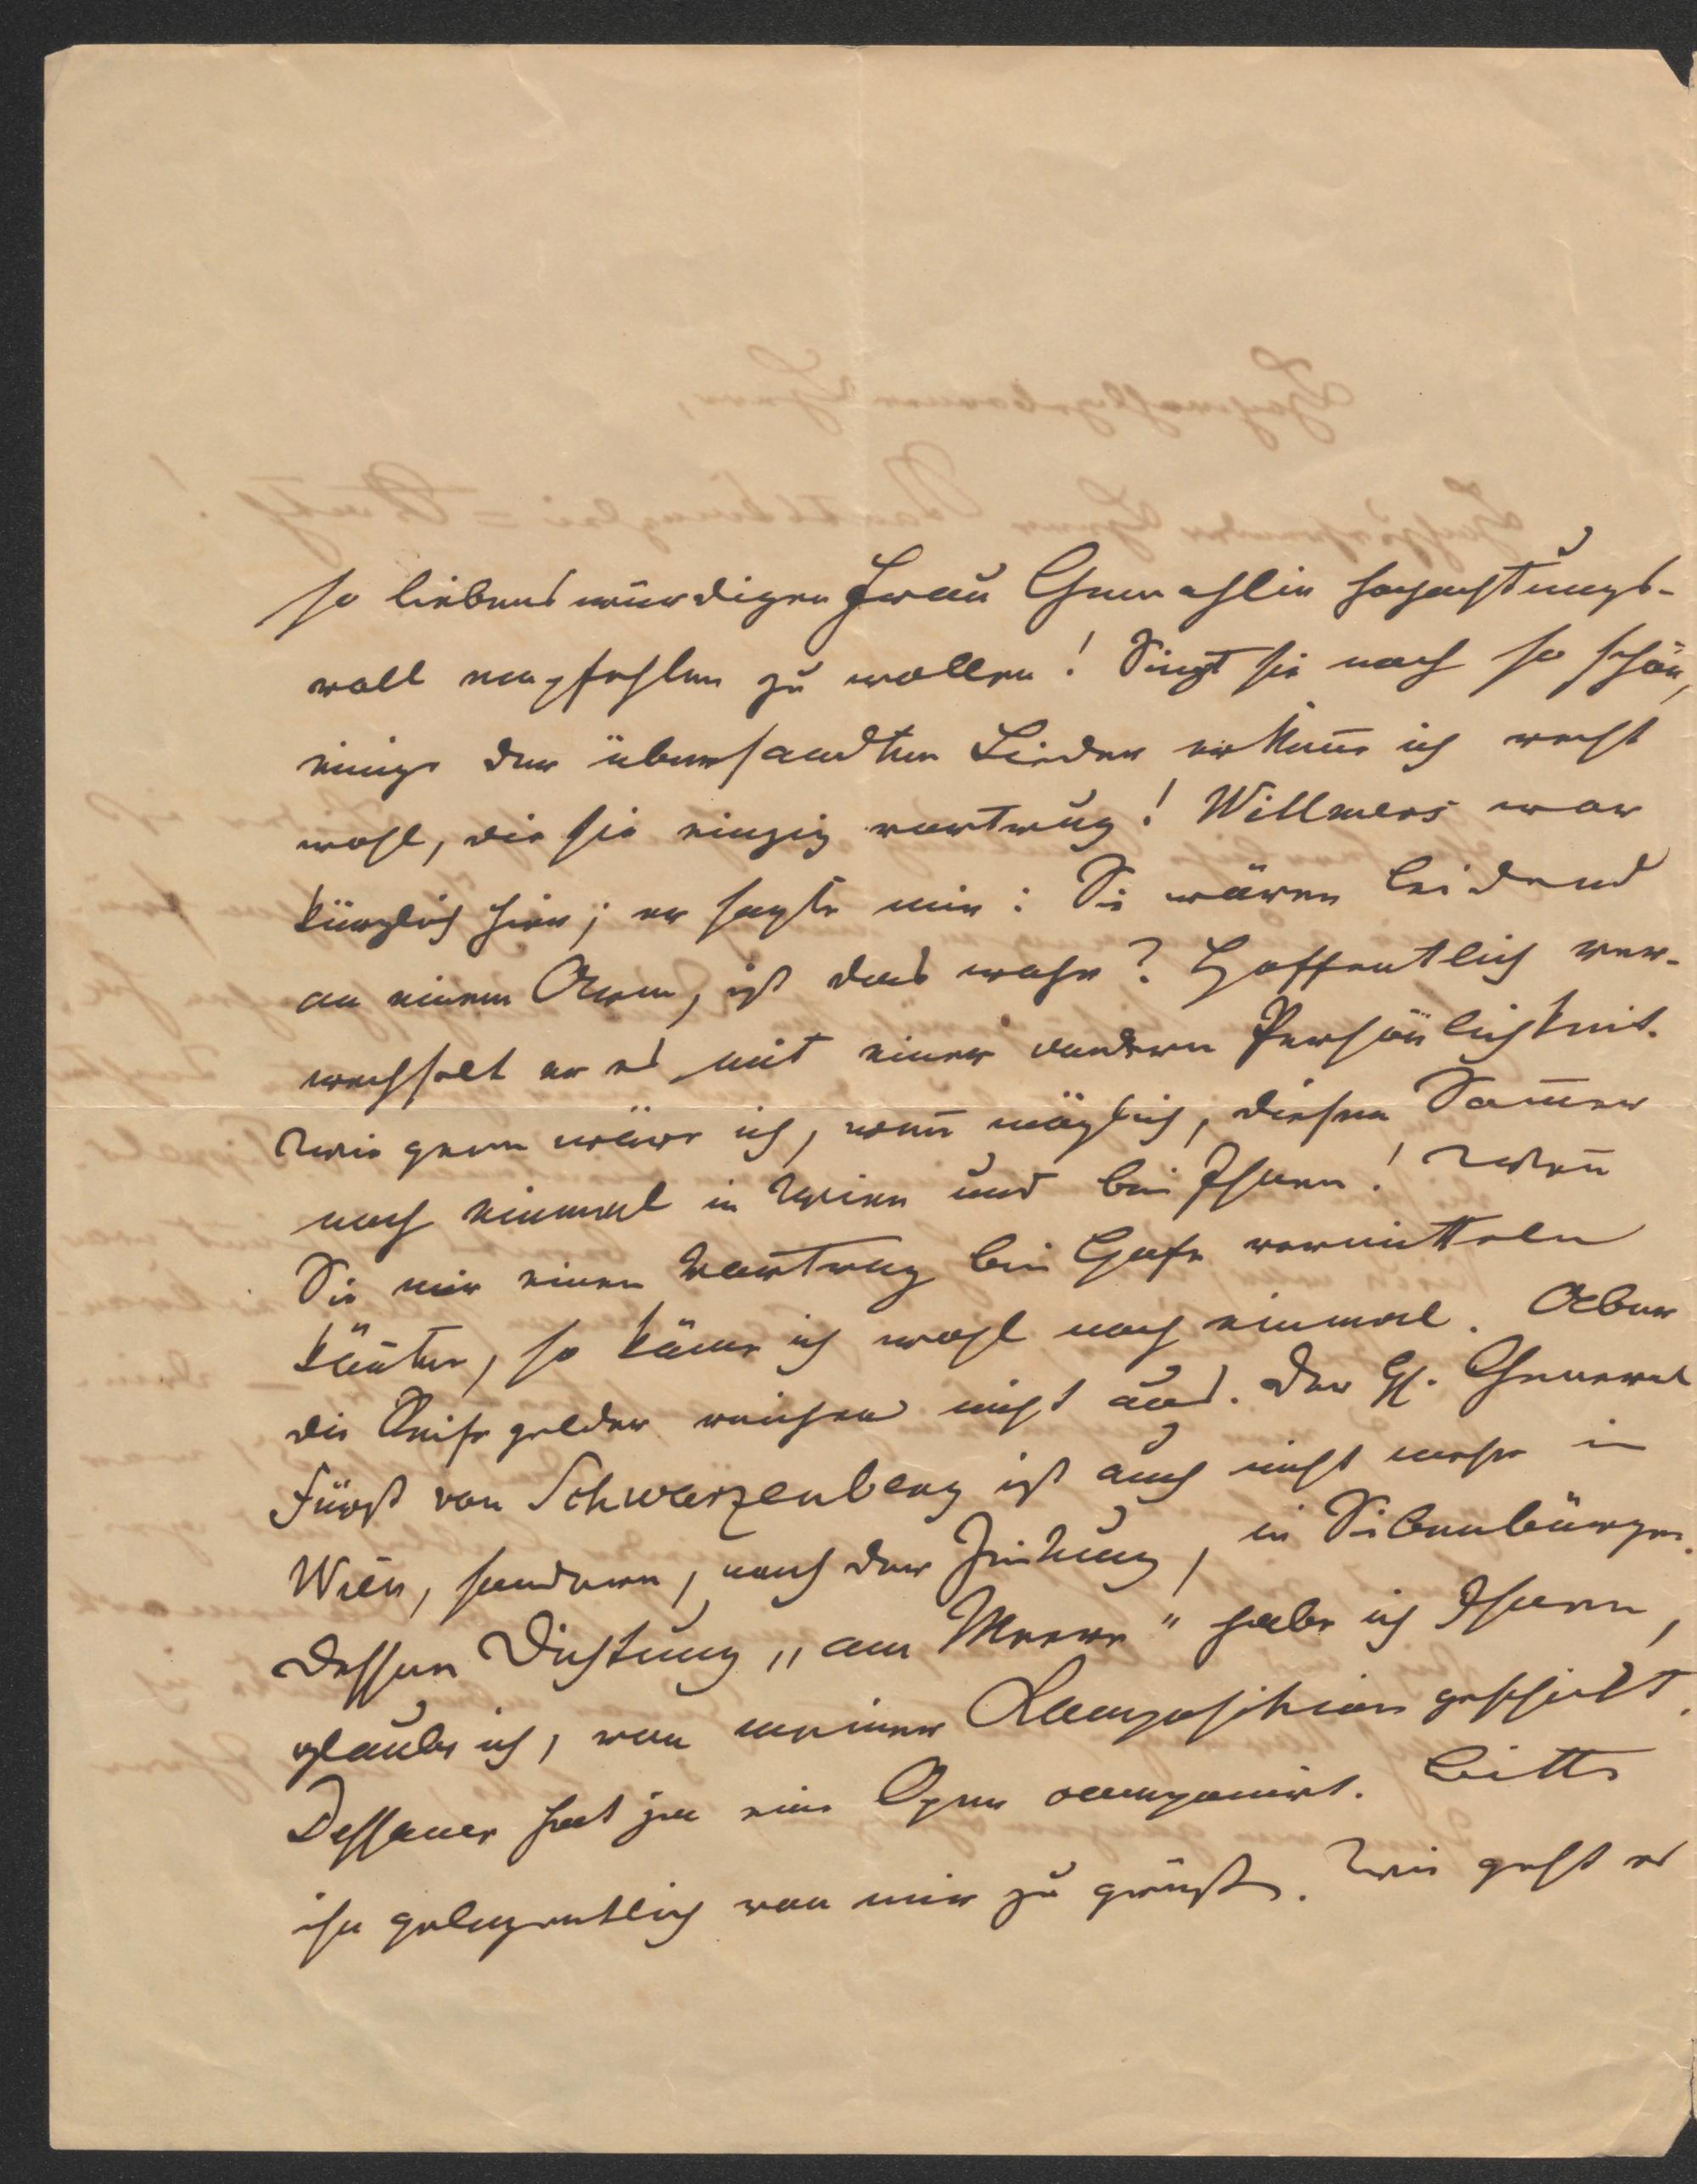 so liebenswürdigen Frau Gemahlin hochachtungs-
voll empfehlen zu wollen! Singt sie noch so schön,
einige der übersandten Lieder erkenne ich recht
wohl, die sie einzig vortrug! Willmers war
kürzlich hier; er sagte mir: Sie wären leidend
an einem Arm, ist das wahr? Hoffentlich ver-
wechselt er es mit einer anderen Persönlichkeit.
Wie gern wäre ich, wenn möglich, diesen Sommer
noch einmal in Wien und bei Ihnen! Wenn
Sie mir einen Vortrag bei Hofe vermitteln
könnten, so käme ich wohl noch einmal. Aber
die Reisegelder reichen nicht aus. Der H. General
Fürst von Schwarzenberg ist auch nicht mehr in
Wien, sondern, nach der Zeitung, in Siebenbürgen.
Dessen Dichtung „am Meere" habe ich Ihnen,
glaube ich, von meiner Composition geschickt.
Dessauer hat ja eine Oper componirt. Bitte
ihn gelegentlich von mir zu grüßen. Wie geht es